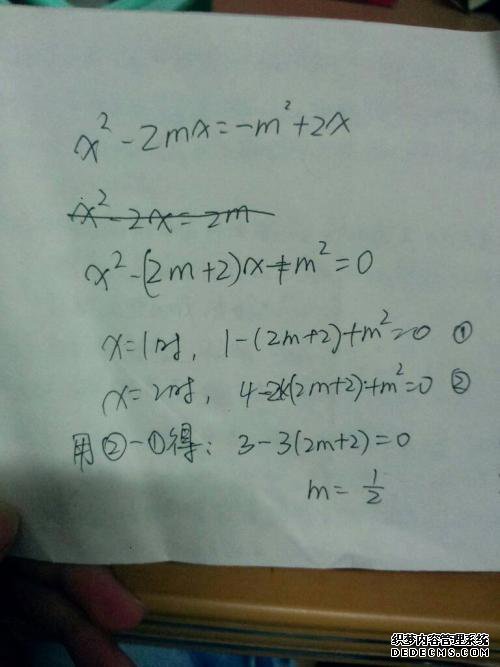 x² - 2mx = -m² + 2x
x² - 2x = 2m
x² - (2m+2)x + m² = 0
x=1时, 1-(2m+2)+m²=0 ①
x=2时, 4-2(2m+2)+m²=0 ②
用②-①得: 3-3(2m+2)=0
m= 1/2
织梦内容管理系统
DEDECMS.COM